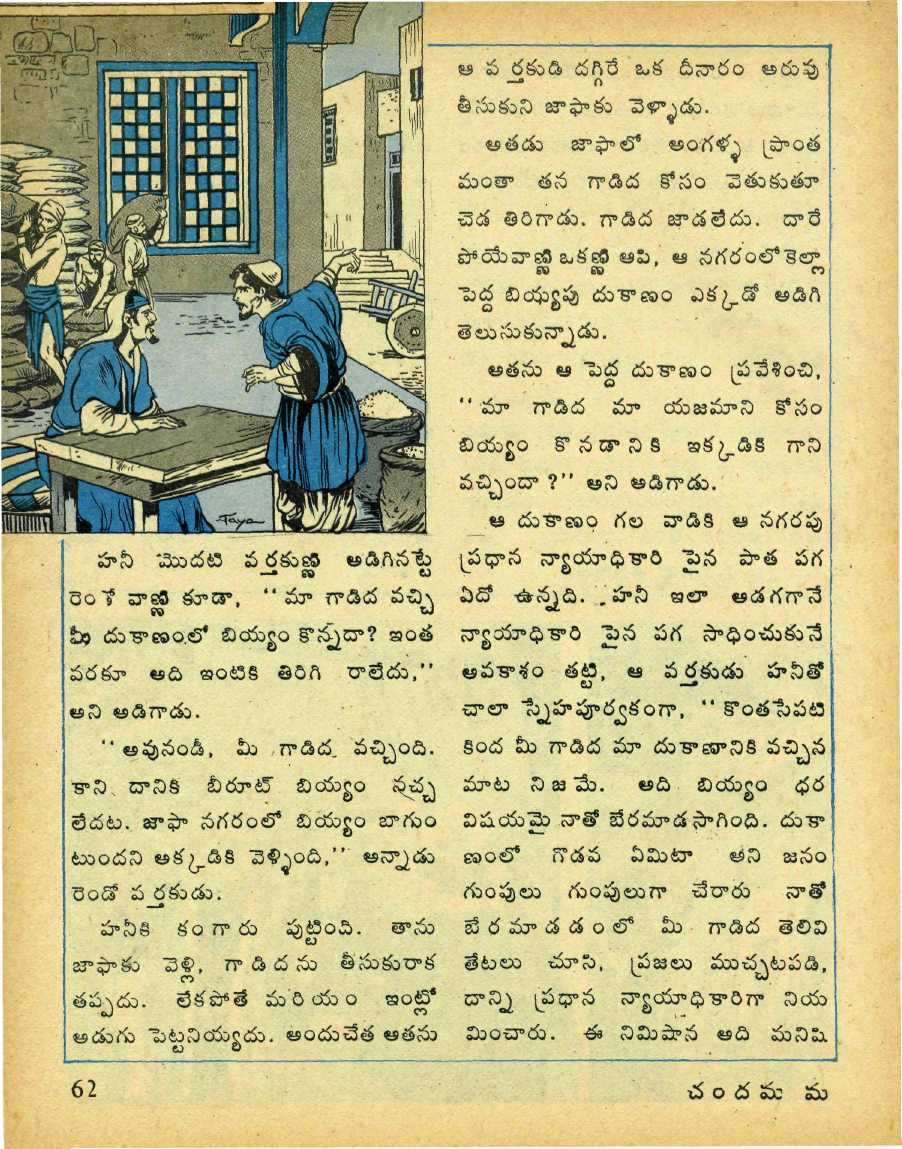 హనీ మొదటి వర్తకుణ్ణి అడిగినట్టే
రెండో వాణ్ణి కూడా, ‘‘మా గాడిద వచ్చి
మీ దుకాణంలో బియ్యం కొన్నదా? ఇంత
వరకూ అది ఇంటికి తిరిగి రాలేదు,’’
అని అడిగాడు.
‘‘అవునండీ, మీ గాడిద వచ్చింది.
కాని దానికి బీరూట్ బియ్యం నచ్చ
లేదట. జాఫా నగరంలో బియ్యం బాగుం
టుందని అక్కడికి వెళ్ళింది,’’ అన్నాడు
రెండో వర్తకుడు.
హనీకి కంగారు పుట్టింది. తాను
జాఫాకు వెళ్లి, గాడిదను తీసుకురాక
తప్పదు. లేకపోతే మరియం ఇంట్లో
అడుగు పెట్టనియ్యదు. అందుచేత అతను
ఆ వర్తకుడి దగ్గిరే ఒక దీనారం అరువు
తీసుకుని జాఫాకు వెళ్ళాడు.
అతడు జాఫాలో అంగళ్ళ ప్రాంత
మంతా తన గాడిద కోసం వెతుకుతూ
చెడ తిరిగాడు. గాడిద జాడలేదు. దారే
పోయేవాణ్ణి ఒకణ్ణి ఆపి, ఆ నగరంలోకెల్లా
పెద్ద బియ్యపు దుకాణం ఎక్కడో అడిగి
తెలుసుకున్నాడు.
అతను ఆ పెద్ద దుకాణం ప్రవేశించి,
‘‘మా గాడిద మా యజమాని కోసం
బియ్యం కొనడానికి ఇక్కడికి గాని
వచ్చిందా?’’ అని అడిగాడు.
ఆ దుకాణం గల వాడికి ఆ నగరపు
ప్రధాన న్యాయాధికారి పైన పాత పగ
ఏదో ఉన్నది. హనీ ఇలా అడగగానే
న్యాయాధికారి పైన పగ సాధించుకునే
అవకాశం తట్టి, ఆ వర్తకుడు హనీతో
చాలా స్నేహపూర్వకంగా, ‘‘కొంతసేపటి
కింద మీ గాడిద మా దుకాణానికి వచ్చిన
మాట నిజమే. అది బియ్యం ధర
విషయమై నాతో బేరమాడసాగింది. దుకా
ణంలో గొడవ ఏమిటా అని జనం
గుంపులు గుంపులుగా చేరారు నాతో
బేరమాడడంలో మీ గాడిద తెలివి
తేటలు చూసి, ప్రజలు ముచ్చటపడి,
దాన్ని ప్రధాన న్యాయాధికారిగా నియ
మించారు. ఈ నిమిషాన అది మనిషి
62
చందమామ